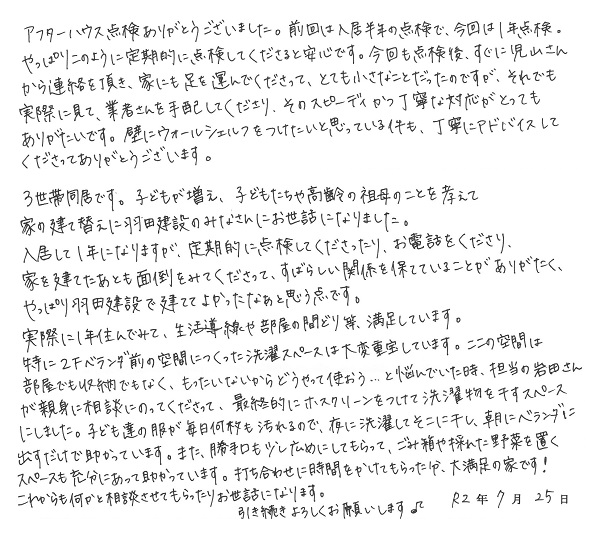 アフターハウス点検ありがとうございました。前回は入居半年の点検で、今回は1年点検。
やっぱりこのように定期的に点検してくださると安心です。今回も点検後、すぐに児山さん
から連絡を頂き、家にも足を運んでくださって、とても小さなことだったのですが、それでも
実際に見て、業者さんを手配してくださり、そのスピーディかつ丁寧な対応がとっても
ありがたいです。壁にウォールシェルフをつけたいと思っている件も、丁寧にアドバイスして
くださってありがとうございます。
3世帯同居です。子どもが増え、子どもたちや高齢の祖母のことを考えて
家の建て替えに羽田建設のみなさんにお世話になりました。
入居して1年になりますが、定期的に点検してくださったり、お電話をくださり、
家を建てたあとも面倒をみてくださって、すばらしい関係を保てていることがありがたく、
やっぱり羽田建設で建ててよかったなぁと思う点です。
実際に1年住んでみて、生活導線や部屋の間どり等、満足しています。
特に2Fベランダ前の空間につくった洗濯スペースは大変重宝しています。ここの空間は
部屋でも収納でもなく、もったいないからどうやって使おう…と悩んでいた時、担当の岩田さん
が親身に相談にのってくださって、最終的にホスクリーンをつけて洗濯物を干すスペース
にしました。子ども達の服が毎日何枚も汚れるので、夜に洗濯してそこに干し、朝にベランダに
出すだけで助かっています。また、勝手口も少し広めにしてもらって、ごみ箱や採れた野菜を置く
スペースも充分にあって助かっています。打ち合わせに時間をかけてもらった分、大満足の家です!
これからも何かと相談させてもらったりお世話になります。
引き続きよろしくお願いします♫
R2年7月25日